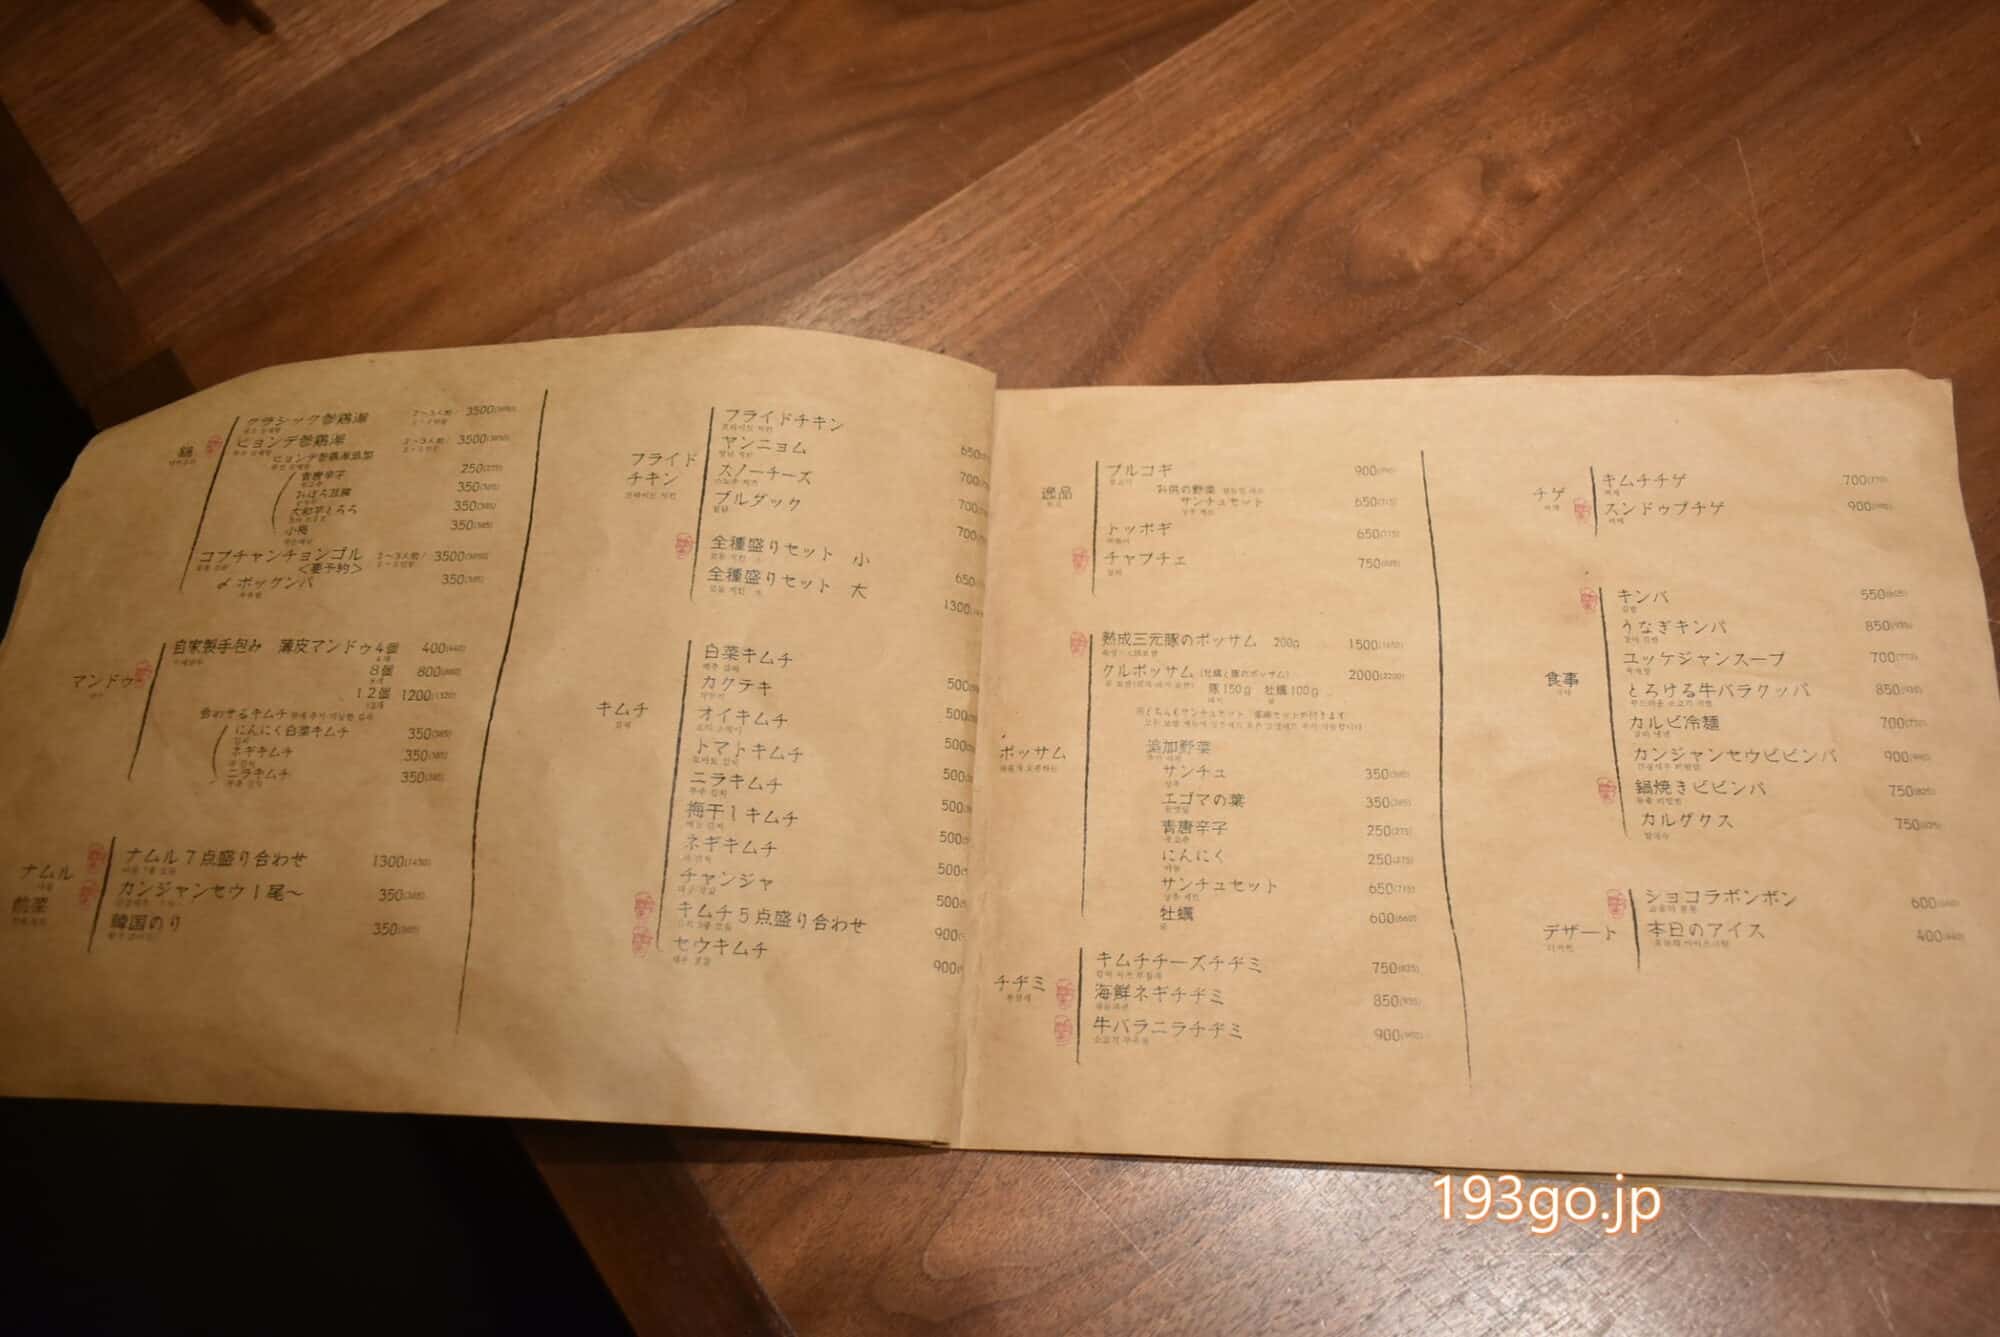 鍋
クラシック参鶏湯 2～3人前 3500(3850)
ヒョンデ参鶏湯 2～3人前 3500(3850)
ヒョンデ参鶏湯追加
青唐辛子 250(275)
おぼろ豆腐 350(385)
大和芋とろろ 350(385)
小梅 350(385)
コプチャンチョンゴル 2～3人前 3500(3850)
<要予約>
〆ポックンパ 350(385)
マンドゥ
自家製手包み 薄皮マンドゥ4個 400(440)
8個 800(880)
12個 1200(1320)
合わせるキムチ
にんにく白菜キムチ 350(385)
ネギキムチ 350(385)
ニラキムチ 350(385)
ナムル
前菜
ナムル7点盛り合わせ 1300(1430)
カンジャンセウ1尾～ 350(385)
韓国のり 350(385)
フライド
チキン
프라이드 치킨
フライドチキン 650
ヤンニョム 700
スノーチーズ 700
ブルダック 700
全種盛りセット 小 650
全種盛りセット 大 1300
キムチ
김치
白菜キムチ 500
カクテキ 500
オイキムチ 500
トマトキムチ 500
ニラキムチ 500
梅干しキムチ 500
ネギキムチ 500
チャンジャ 500
キムチ5点盛り合わせ 900
セウキムチ 900
逸品
プルコギ 900(990)
お供の野菜
サンチュセット 650(715)
トッポギ 650(715)
チャプチェ 750(825)
ポッサム
熟成三元豚のポッサム 200g 1500(1650)
クルポッサム (牡蠣と豚のポッサム) 2000(2200)
豚150g 牡蠣100g
追加野菜
サンチュ 350(385)
エゴマの葉 350(385)
青唐辛子 250(275)
にんにく 250(275)
サンチュセット 650(715)
牡蠣 600(660)
チヂミ
キムチチーズチヂミ 750(825)
海鮮ネギチヂミ 850(935)
牛バラニラチヂミ 900(990)
チゲ
찌개
キムチチゲ 700(770)
スンドゥブチゲ 900(990)
食事
식사
キンパ 550(605)
김밥
うなぎキンパ 850(935)
ユッケジャンスープ 700(770)
とろける牛バラクッパ 850(935)
カルビ冷麺 700(770)
カンジャンセウビビンバ 900(990)
鍋焼きビビンバ 750(825)
カルグクス 750(825)
칼국수
デザート
디저트
ショコラボンボン 600(660)
本日のアイス 400(440)
193go.jp